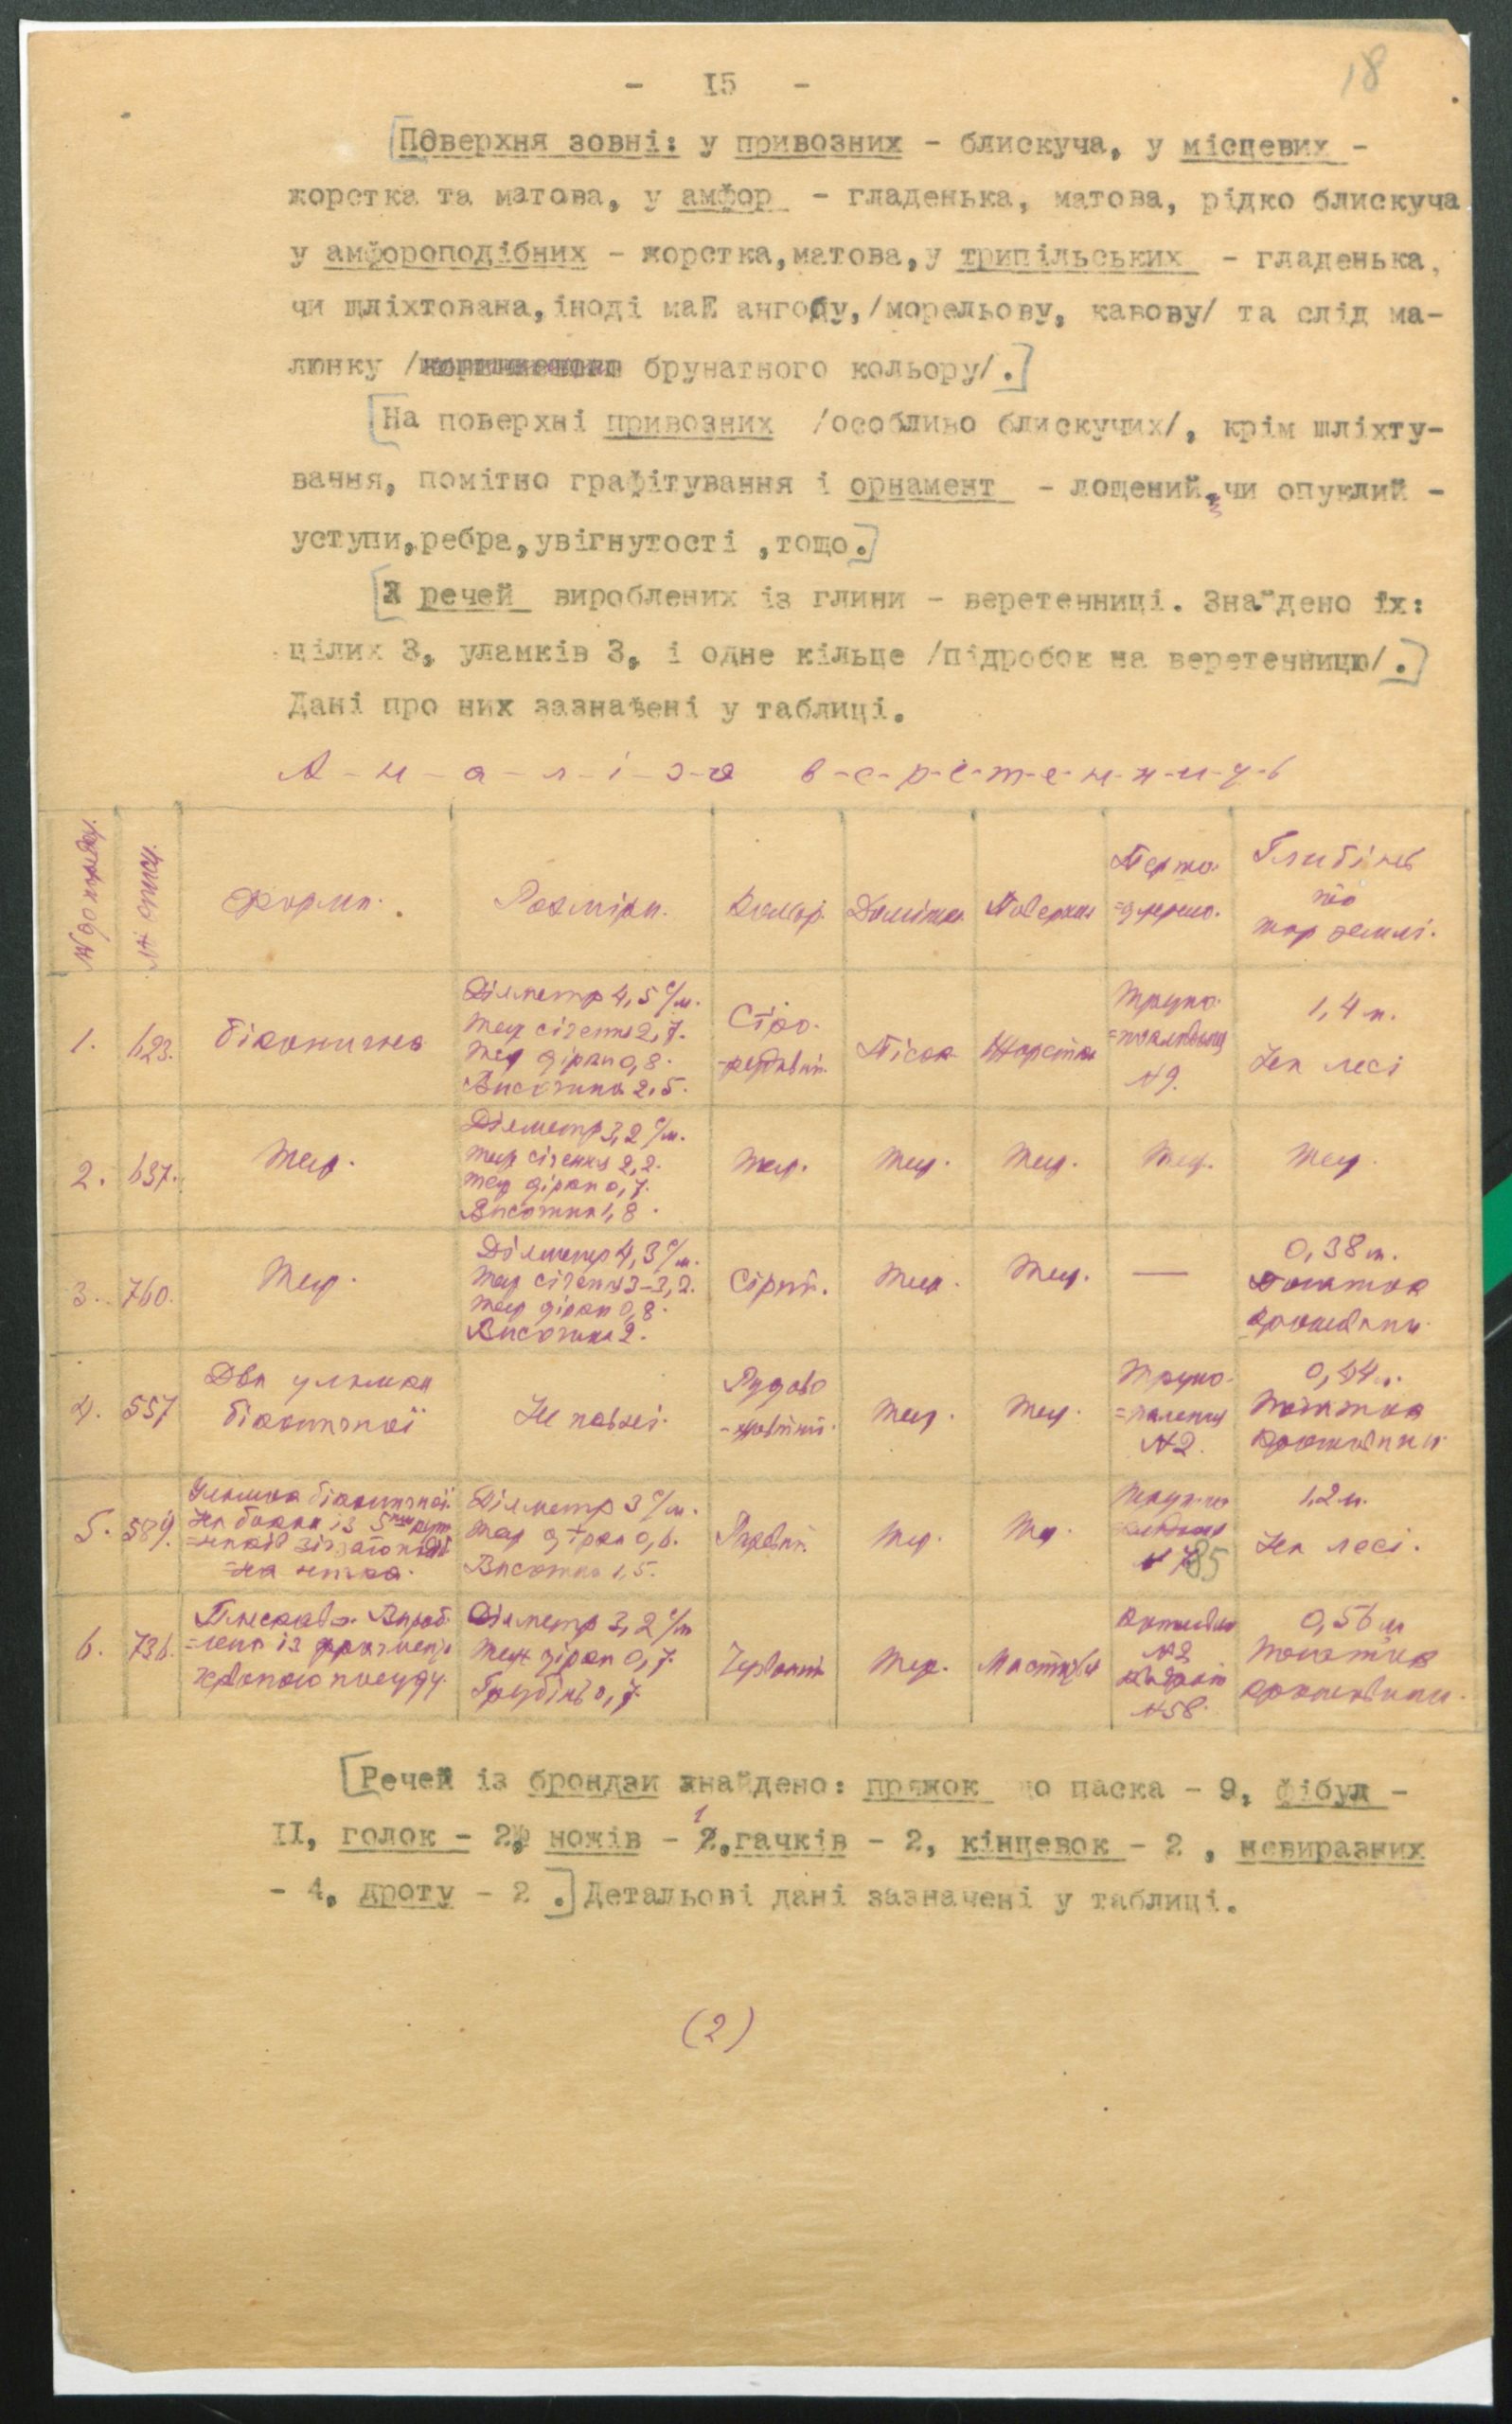 18
- 15 -
[Поверхня зовні: у привозних - блискуча, у місцевих -
жорстка та матова, у амфор - гладенька, матова, рідко блискуча
у амфороподібних - жорстка,матова,у трипільських - гладенька,
чи шліхтована,іноді маЕ ангобу,/морельову, кавову/ та слід ма-
люнку / брунатного кольору/.]
[На поверхні привозних /особливо блискучих/, крім шліхту-
вання, помітно графітування і орнамент - лощений, чи опуклий -
уступи,ребра,увігнутості ,тощо.]
[З речей вироблених із глини - веретенниці. Знайдено їх:
цілих 3, уламків 3, і одне кільце /підробок на веретенницю/.]
Дані про них зазначені у таблиці.
А-н-а-л-і-з-а в-е-р-е-т-е-н-н-и-ц-ь
№ до порядку. № опису. Форма. Розміри. Колір. Домішка. Поверхня Перто-
=джерело. Глибінь
та
шар землі.
1. 623. біконична Діяметр 4,5 с/м.
теж січення 2,7.
теж дірки 0,8.
Височина 2,5. Сіро-
-рудавий. Пісок Жорстка Трупо-
№9. 1,4 м.
На лесі
2. 637. Теж. Діяметр 3,2 с/м.
теж січення 2,2.
теж дірки 0,7.
Височина 1,8. Теж. Теж. Теж. Теж. Теж.
3. 760. Теж. Діяметр 4,3 с/м.
теж січення 3-3,2.
теж дірки 0,8.
Височина 2. Сірий. Теж. Теж. — 0,38 м.
4. 557 Два уламки
біконичної Не повні. Рудаво
Теж. Теж. Трупо-
=палення
№2. 0,44 м.
5. 589. Уламок біконичної.
На боках із
Діяметр 3 с/м.
теж дірки 0,6.
Височина 1,5. Рудавий. Теж. Теж.
85 1,2 м.
На лесі.
6. 736. Плескова. Вироб-
=лена із
посуду. Діяметр 3,2 с/м
теж дірки 0,7.
Грубінь 0,7. Червоний Теж. Мастка
№2
квадрат
№58. 0,56 м
[Речей із брондзи знайдено: пряжок до паска - 9, фібул -
II, голок - 2, ножів - 1,гачків - 2, кінцевок - 2 , невиразних
- 4, дроту - 2 .]Детальові дані зазначені у таблиці.
(2)